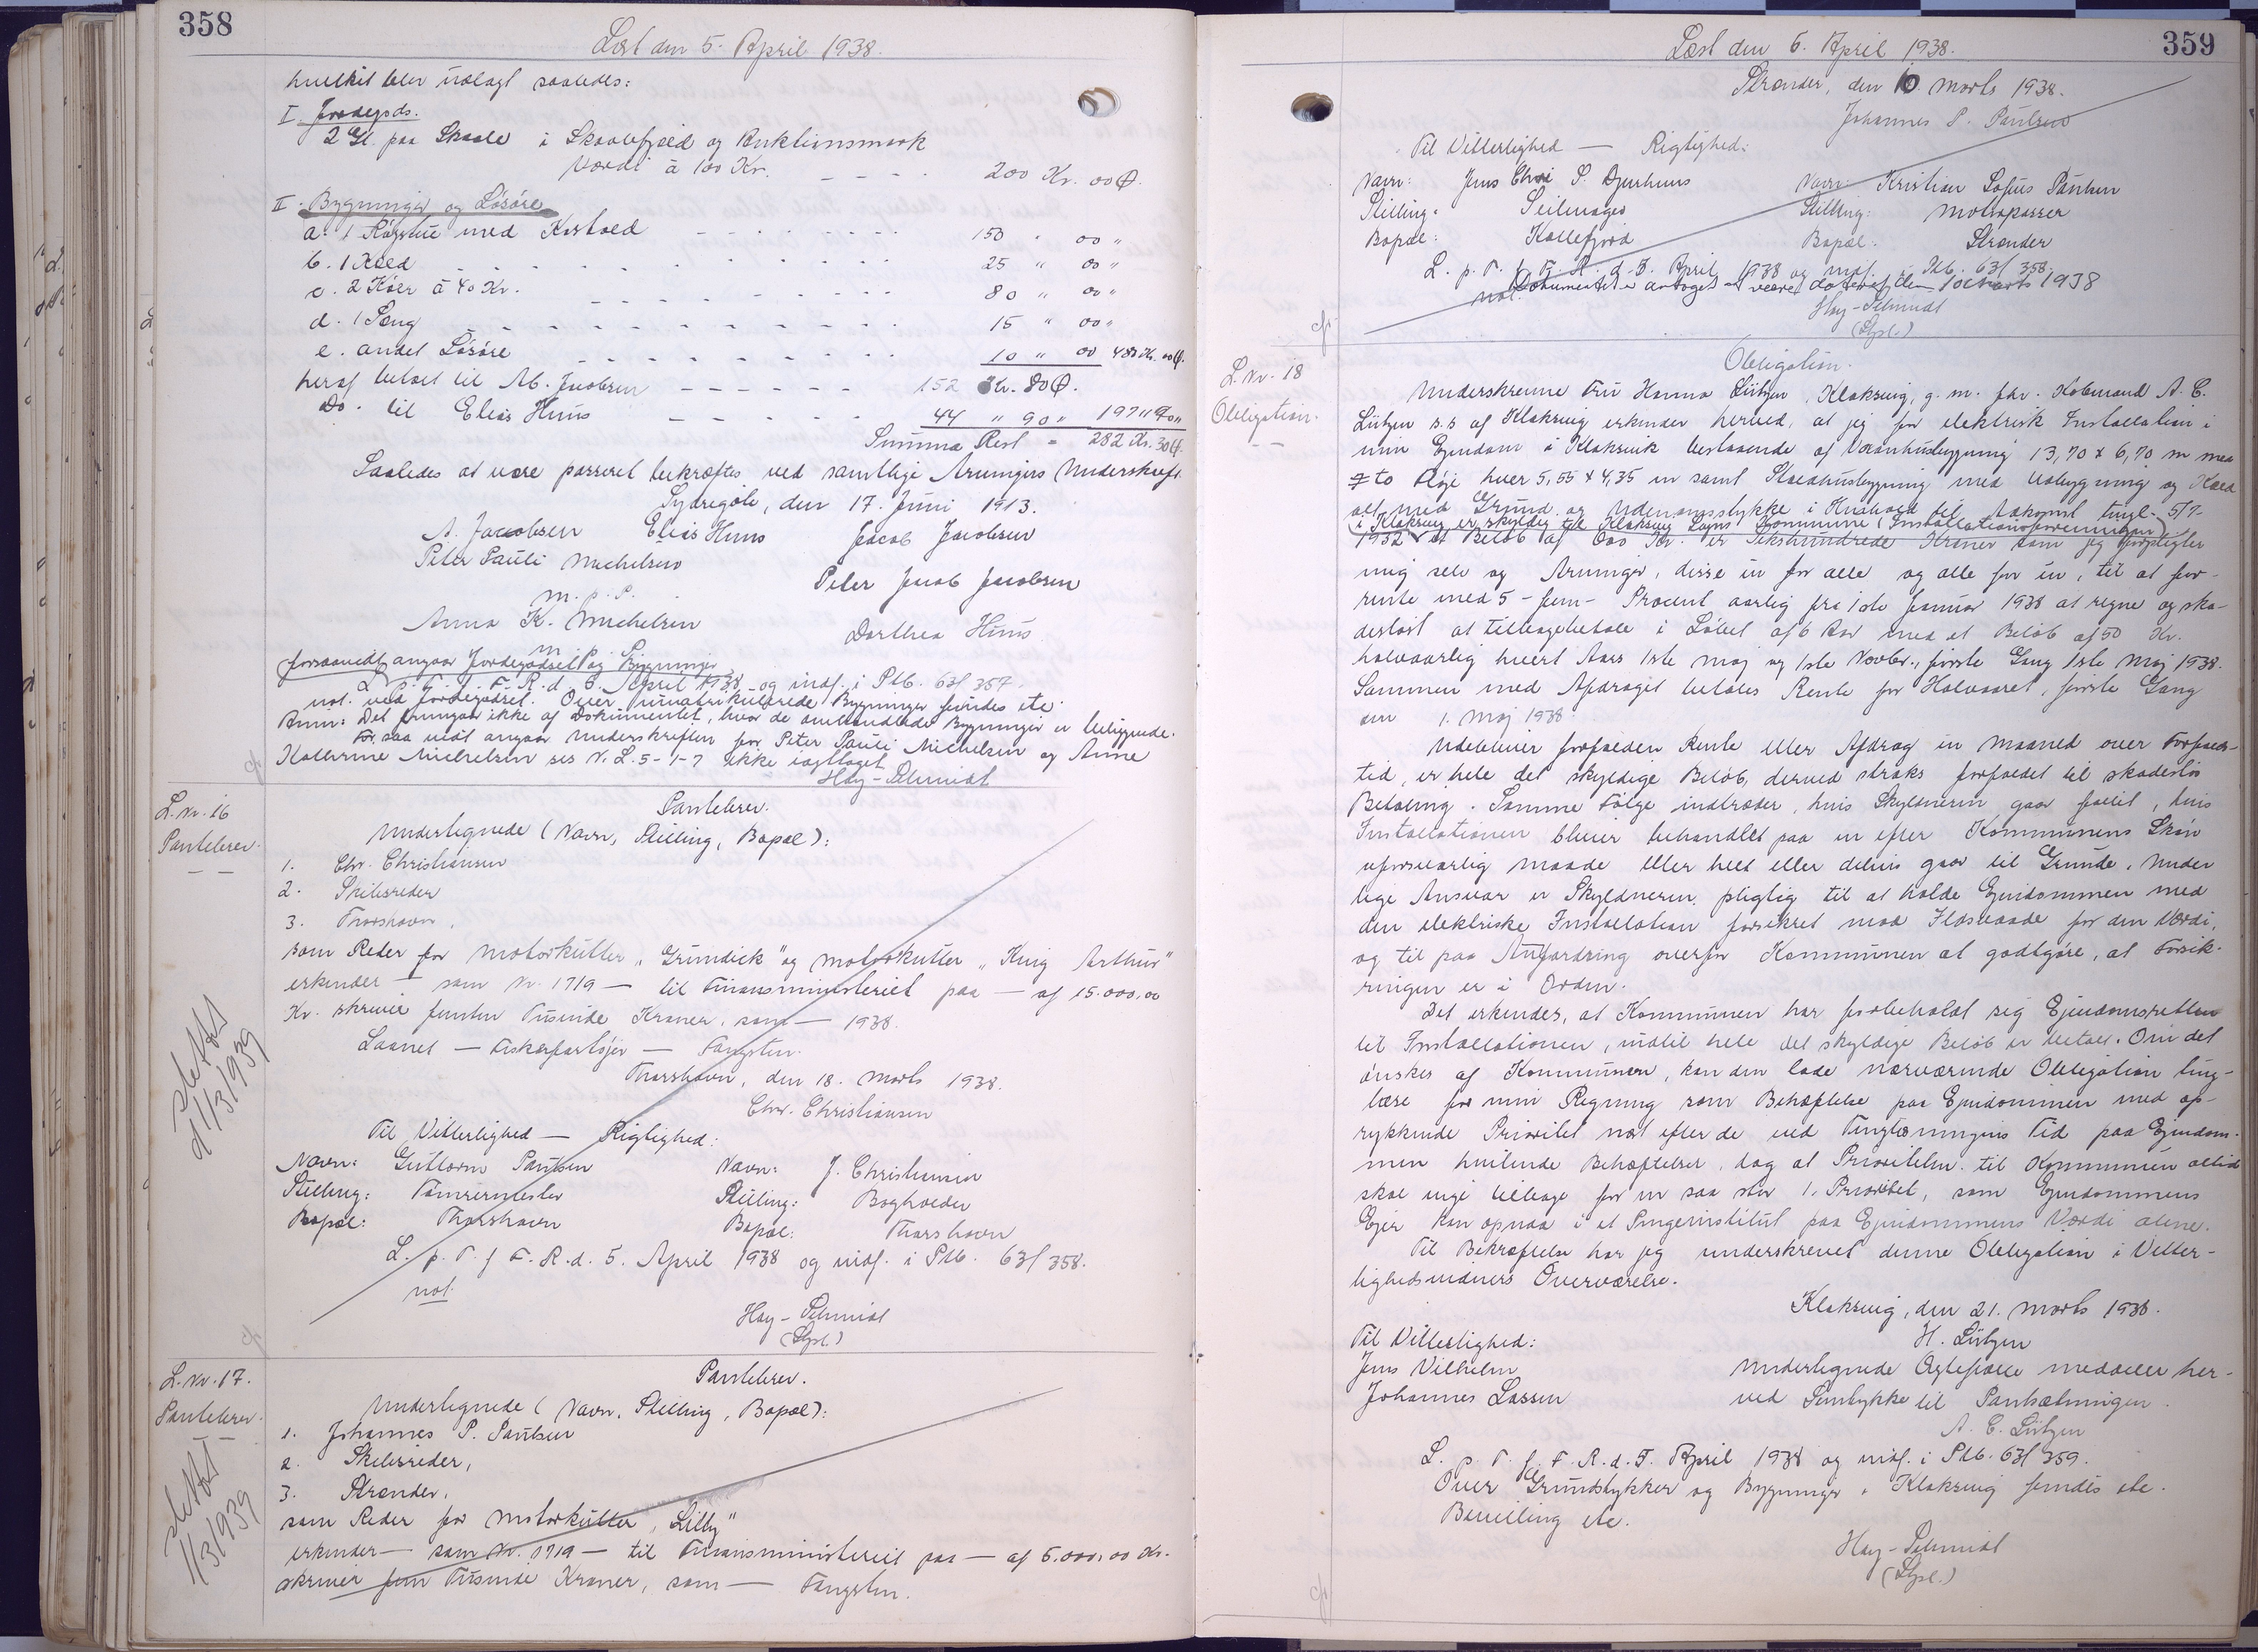 358
Læst den 5. April 1938.
hvilket blev udlagt saaledes:
I. Jordegods.
2 Gl. paa Skaale i Skaalefjæld og Auktionsmark
Værdi à 100 Kr. 200 Kr. 00 Ø.
II. Bygninger og Løsøre
a. 1 Røgstue med Kostald 150 " 00 "
b. 1 Kæld 25 " 00 "
c. 2 Køer à 40 Kr. 80 " 00 "
d. 1 Seng 15 " 00 "
e. andet Løsøre 10 " 00 480 Kr. 00 Ø.
heraf betalt til Ab. Jacobsen 152 Kr. 80 Ø.
Do. til Elias Huus 44 " 90 " 197 " 70 "
Summa Rest = 282 Kr. 30 Ø.
Saaledes at være passeret bekræftes ved samtlige Arvingers Underskrift.
Sydregøte, den 17. Juni 1913.
A. Jacobsen Elias Huus Jacob Jacobsen
Peter Pauli Michelsen Peter Jacob Jacobsen
m. p. P.
Anna K. Michelsen Dorthea Huus
m. p. P.
forsaavidt angaar Jordegodset og Bygninger
L. p. T. f. F. R. d. 5. April 1938 og indf. i Ptb. 63/357.
not. ved Jordegodset. Over umatrikulerede Bygninger findes ete.
Anm: Det fremgaar ikke af Dokumentet, hvor de omhandlede Bygninger er beliggende.
For saa vidt angaar Underskriften for Peter Pauli Michelsen og Anne
Kathrine Michelsen ses N. L. 5-1-7 ikke iagttaget
Hay-Schmidt
L. Nr. 16
Pantebrev.
Pantebrev.
Undertegnede (Navn, Stilling, Bopæl):
1. Chr. Christiansen
2. Skibsreder
3. Thorshavn.
som Reder for Motorkutter "Grundick" og Motorkutter "King Arthur"
erkender — som Nr. 1719 — til Finansministeriet paa — af 15.000,00
Kr. skriver femten Tusinde Kroner, som — 1938.
Laanet — Fiskerfartøjer — Fangsten.
Thorshavn, den 18. Marts 1938.
Chr. Christiansen
slettet
d 1/3 1939
Til Vitterlighed — Rigtighed:
Navn: Guttorm Poulsen Navn: J. Christiansen
Stilling: Tømrermester Stilling: Bogholder
Bopæl: Thorshavn Bopæl: Thorshavn
L. p. T. f. F. R. d. 5. April 1938 og indf. i Ptb. 63/358.
not.
Hay-Schmidt
(Styl.)
L. Nr. 17.
Pantebrev.
Pantebrev.
Undertegnede (Navn, Stilling, Bopæl):
1. Johannes P. Poulsen
2. Skibsreder,
3. Strender,
som Reder for Motorkutter "Lilly"
erkender — som Nr. 1719 — til Finansministeriet paa — af 5.000,00 Kr.
skriver fem Tusinde Kroner, som — Fangsten.
slettet
1/3 1939
359
Læst den 5. April 1938.
Strender, den 10. Marts 1938.
Johannes P. Poulsen
Til Vitterlighed — Rigtighed:
Navn: Jens Chr. S. Djurhuus Navn: Kristian Sofus Poulsen
Stilling: Seilmager Stilling: Motorpasser
Bopæl: Kollefjord Bopæl: Strender
L. p. T. f. F. R. d. 5. April 1938 og indf. i Ptb. 63/358.
not. Dokumentet er antaget at være dateret den 10 Marts 1938
Hay-Schmidt
(Styl.)
L. Nr. 18
Obligation.
Obligation.
Underskrevne Fru Hanna Lützen, Klaksvig, g. m. fhv. Købmand A. C.
Lützen s.s. af Klaksvig erkender herved, at jeg for elektrisk Installation i
min Ejendom i Klaksvik bestaaende af Vaanhusbygning 13,70 x 6,70 m med
to Fløje hver 5,55 x 4,35 m samt Staldhusbygning med Udbygning og Kæld
alt med Grund og Udenomsstykke i Henhold til Adkomst tingl. 5/7-
i Klaksvig er skyldig til Klaksvig Sogns Kommune (Installationsforeningen)
1932 et Beløb af 600 Kr. er Sekshundrede Kroner som jeg forpligter
mig selv og Arvinger, disse en for alle og alle for en, til at for-
rente med 5 - fem - Procent aarlig fra 1ste Januar 1938 at regne og ska-
desløst at tilbagebetale i Løbet af 6 Aar med et Beløb af 50 Kr.
halvaarlig hvert Aars 1ste Maj og 1ste Novbr., første Gang 1ste Maj 1938.
Sammen med Afdraget betales Rente for Halvaaret, første Gang
den 1. Maj 1938.
Udebliver forfalden Rente eller Afdrag en Maaned over Forfalds-
tid, er hele det skyldige Beløb derved straks forfaldet til skadesløs
Betaling. Samme Følge indtræder, hvis Skyldneren gaar fallit, hvis
Installationen bliver behandlet paa en efter Kommunens Skøn
uforsvarlig Maade eller helt eller delvis gaar til Grunde. Under
lige Ansvar er Skyldneren pligtig til at holde Ejendommen med
den elektriske Installation forsikret mod Ildsvaade for den Værdi,
og til paa Anfordring overfor Kommunen at godtgøre, at Forsik-
ringen er i Orden.
Det erkendes, at Kommunen har forbeholdt sig Ejendomsretten
til Installationen, indtil hele det skyldige Beløb er betalt. Om det
ønskes af Kommunen, kan den lade nærværende Obligation ting-
læse for min Regning som Behæftelse paa Ejendommen med op-
rykkende Prioritet næst efter de ved Tinglæsningens Tid paa Ejendom-
men hvilende Behæftelser, dog at Prioriteten til Kommunen altid
skal vige tilbage for en saa stor 1. Prioritet, som Ejendommens
Ejer kan opnaa i et Pengeinstitut paa Ejendommens Værdi alene.
Til Bekræftelse har jeg underskrevet denne Obligation i Vitter-
lighedsvidners Overværelse.
Klaksvig, den 21. Marts 1938.
Til Vitterlighed: H. Lützen
Jens Vilhelm Undertegnede Ægtefælle meddeler her-
Johannes Lassen ved Samtykke til Pantsætningen.
A. C. Lützen
L. p. T. f. F. R. d. 5. April 1938 og indf. i Ptb. 63/359.
Over Grundstykker og Bygninger i Klaksvig findes ete.
Bevilling ete.
Hay-Schmidt
(Styl.)